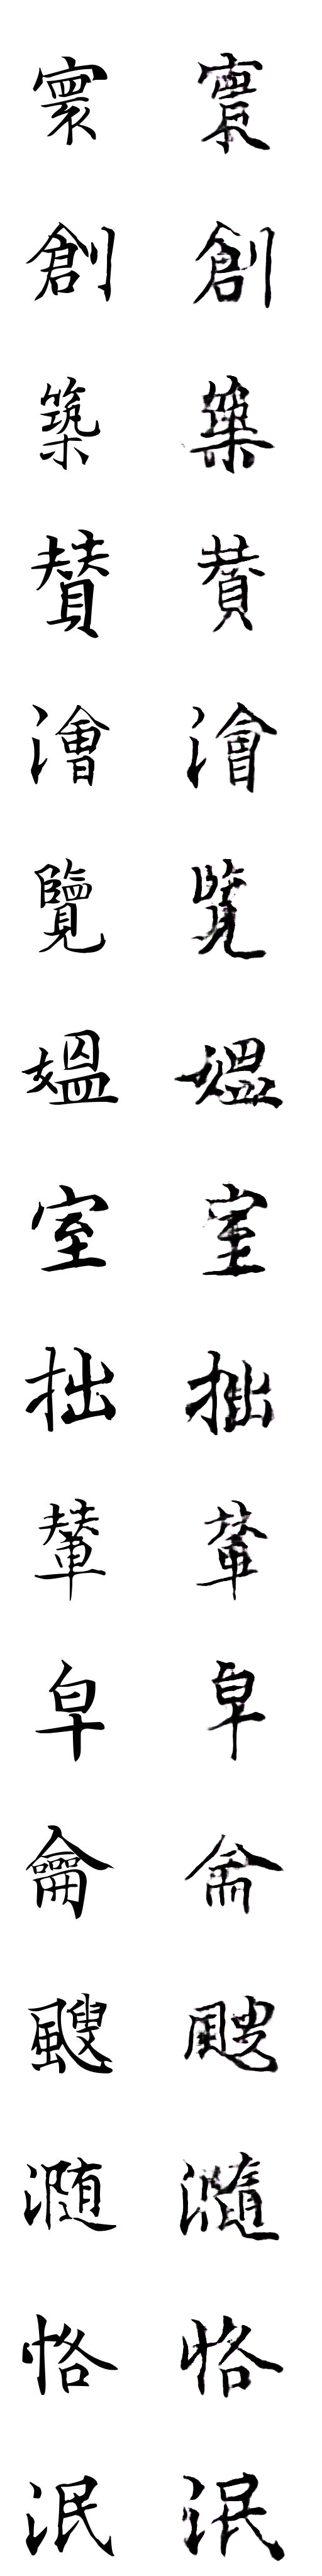 寰 寰
創 創
築 築
賛 賛
澮 澮
覽 覽
媼 媼
室 室
拙 拙
輦 輦
皁 皁
龠 龠
颼 颼
瀡
恪 恪
泯 泯